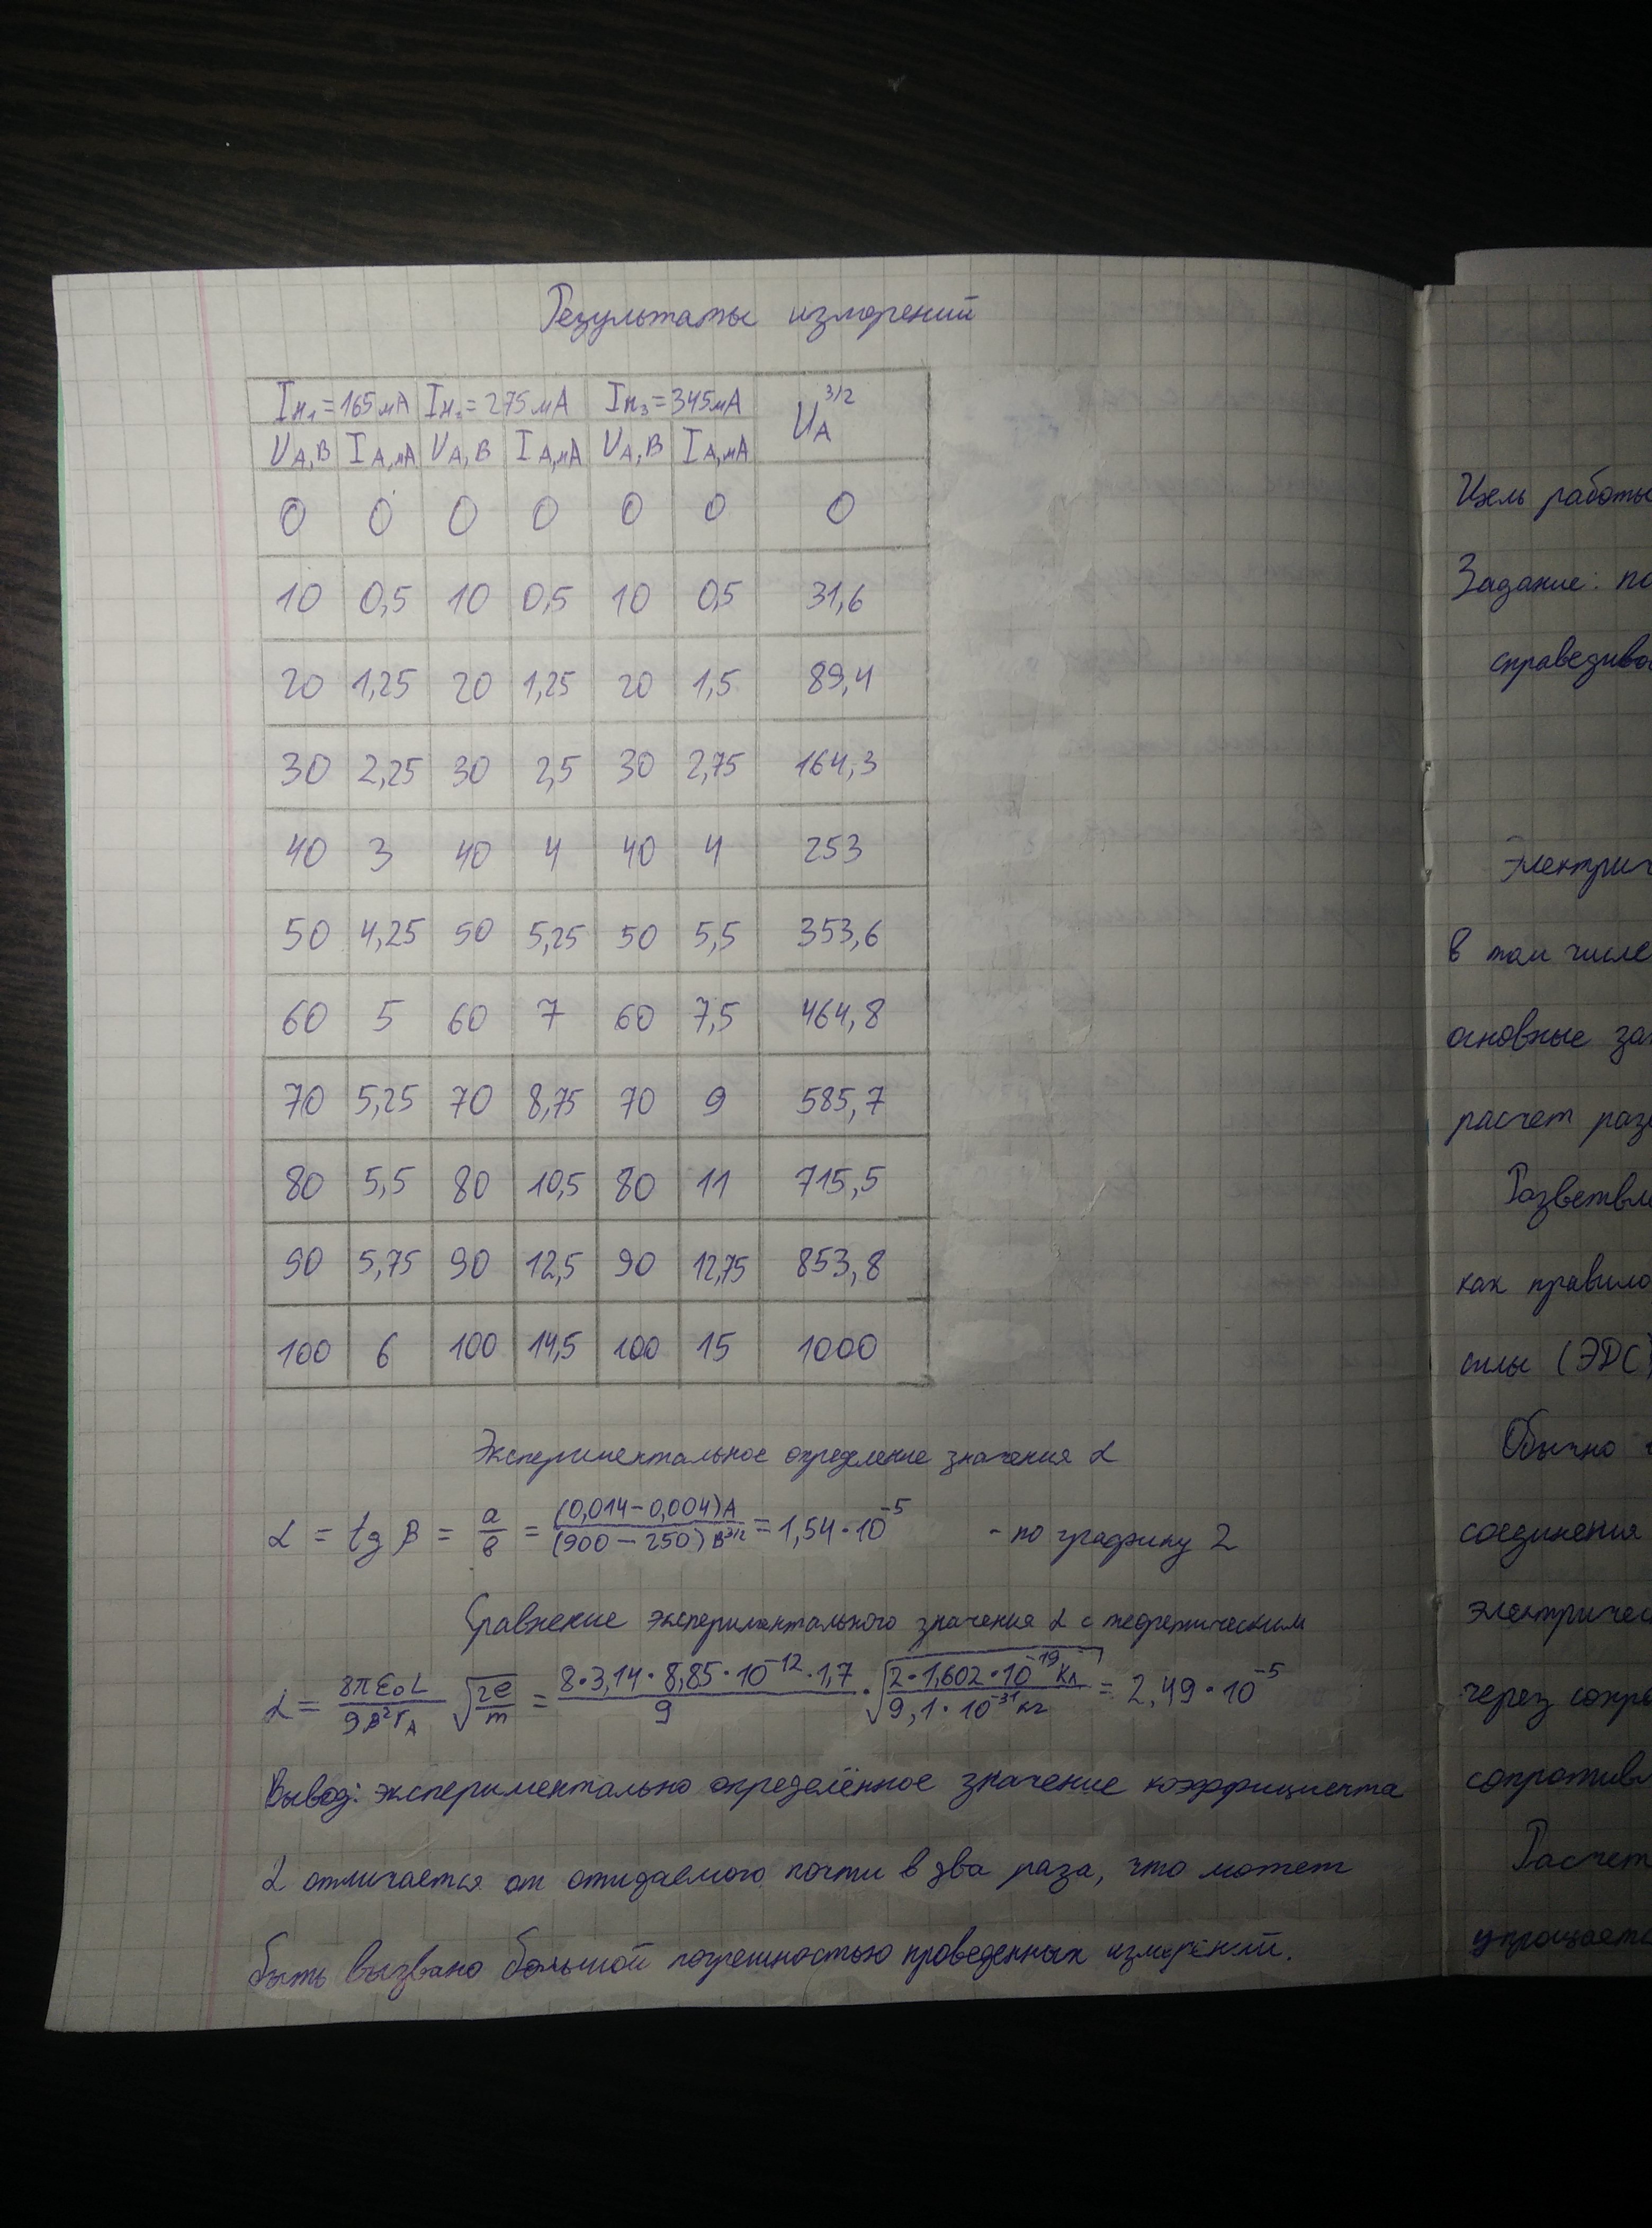 Результаты измерений
Iн₁=165мА Iн₂=275мА Iн₃=345мА U_A^3/2
U_A,В I_A,мА U_A,В I_A,мА U_A,В I_A,мА
0 0 0 0 0 0 0
10 0,5 10 0,5 10 0,5 31,6
20 1,25 20 1,25 20 1,5 89,4
30 2,25 30 2,5 30 2,75 164,3
40 3 40 4 40 4 253
50 4,25 50 5,25 50 5,5 353,6
60 5 60 7 60 7,5 464,8
70 5,25 70 8,75 70 9 585,7
80 5,5 80 10,5 80 11 715,5
90 5,75 90 12,5 90 12,75 853,8
100 6 100 14,5 100 15 1000
Экспериментальное определение значения α
α = tg β = a/в = (0,014-0,004)А/(900-250)В^3/2 = 1,54·10^-5 - по графику 2
Сравнение экспериментального значения α с теоретическим
α = 8πε₀L/9β²r_A √(2e/m) = 8·3,14·8,85·10^-12·1,7/9 · √(2·1,602·10^-19 Кл/9,1·10^-31 кг) = 2,49·10^-5
Вывод: экспериментально определённое значение коэффициента
α отличается от ожидаемого почти в два раза, что может
быть вызвано большой погрешностью проведенных измерений.
Цель работы
Задание: по
справедливо
Электрич
в том числе
основные за
расчет раз
Разветвле
как правило
силы (ЭДС)
Обычно
соединения
электричес
через сопро
сопротивл
Расчет
упрощаетс